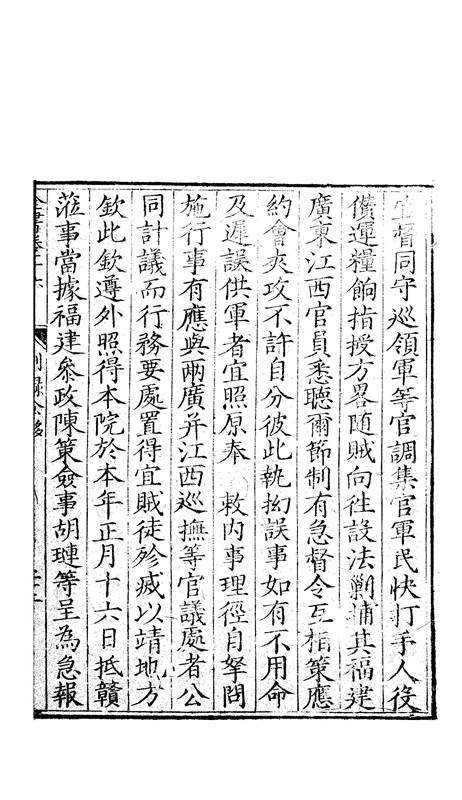 宜督同守巡領軍等官調集官軍民快打手人役
儹運糧餉指授方畧隨賊向往設法剿捕其福建
廣東江西官員悉聽爾節制有急督令互相策應
約會夾攻不許自分彼此執拗誤事如有不用命
及遲誤供軍者宜照原奉 敕内事理徑自拏問
施行事有應與兩廣并江西巡撫等官議處者公
同計議而行務要處置得宜賊徒殄滅以靖地方
欽此欽遵外照得本院於本年正月十六日抵贛
蒞事當據福建叅政陳策僉事胡璉等呈為急報
別錄公移